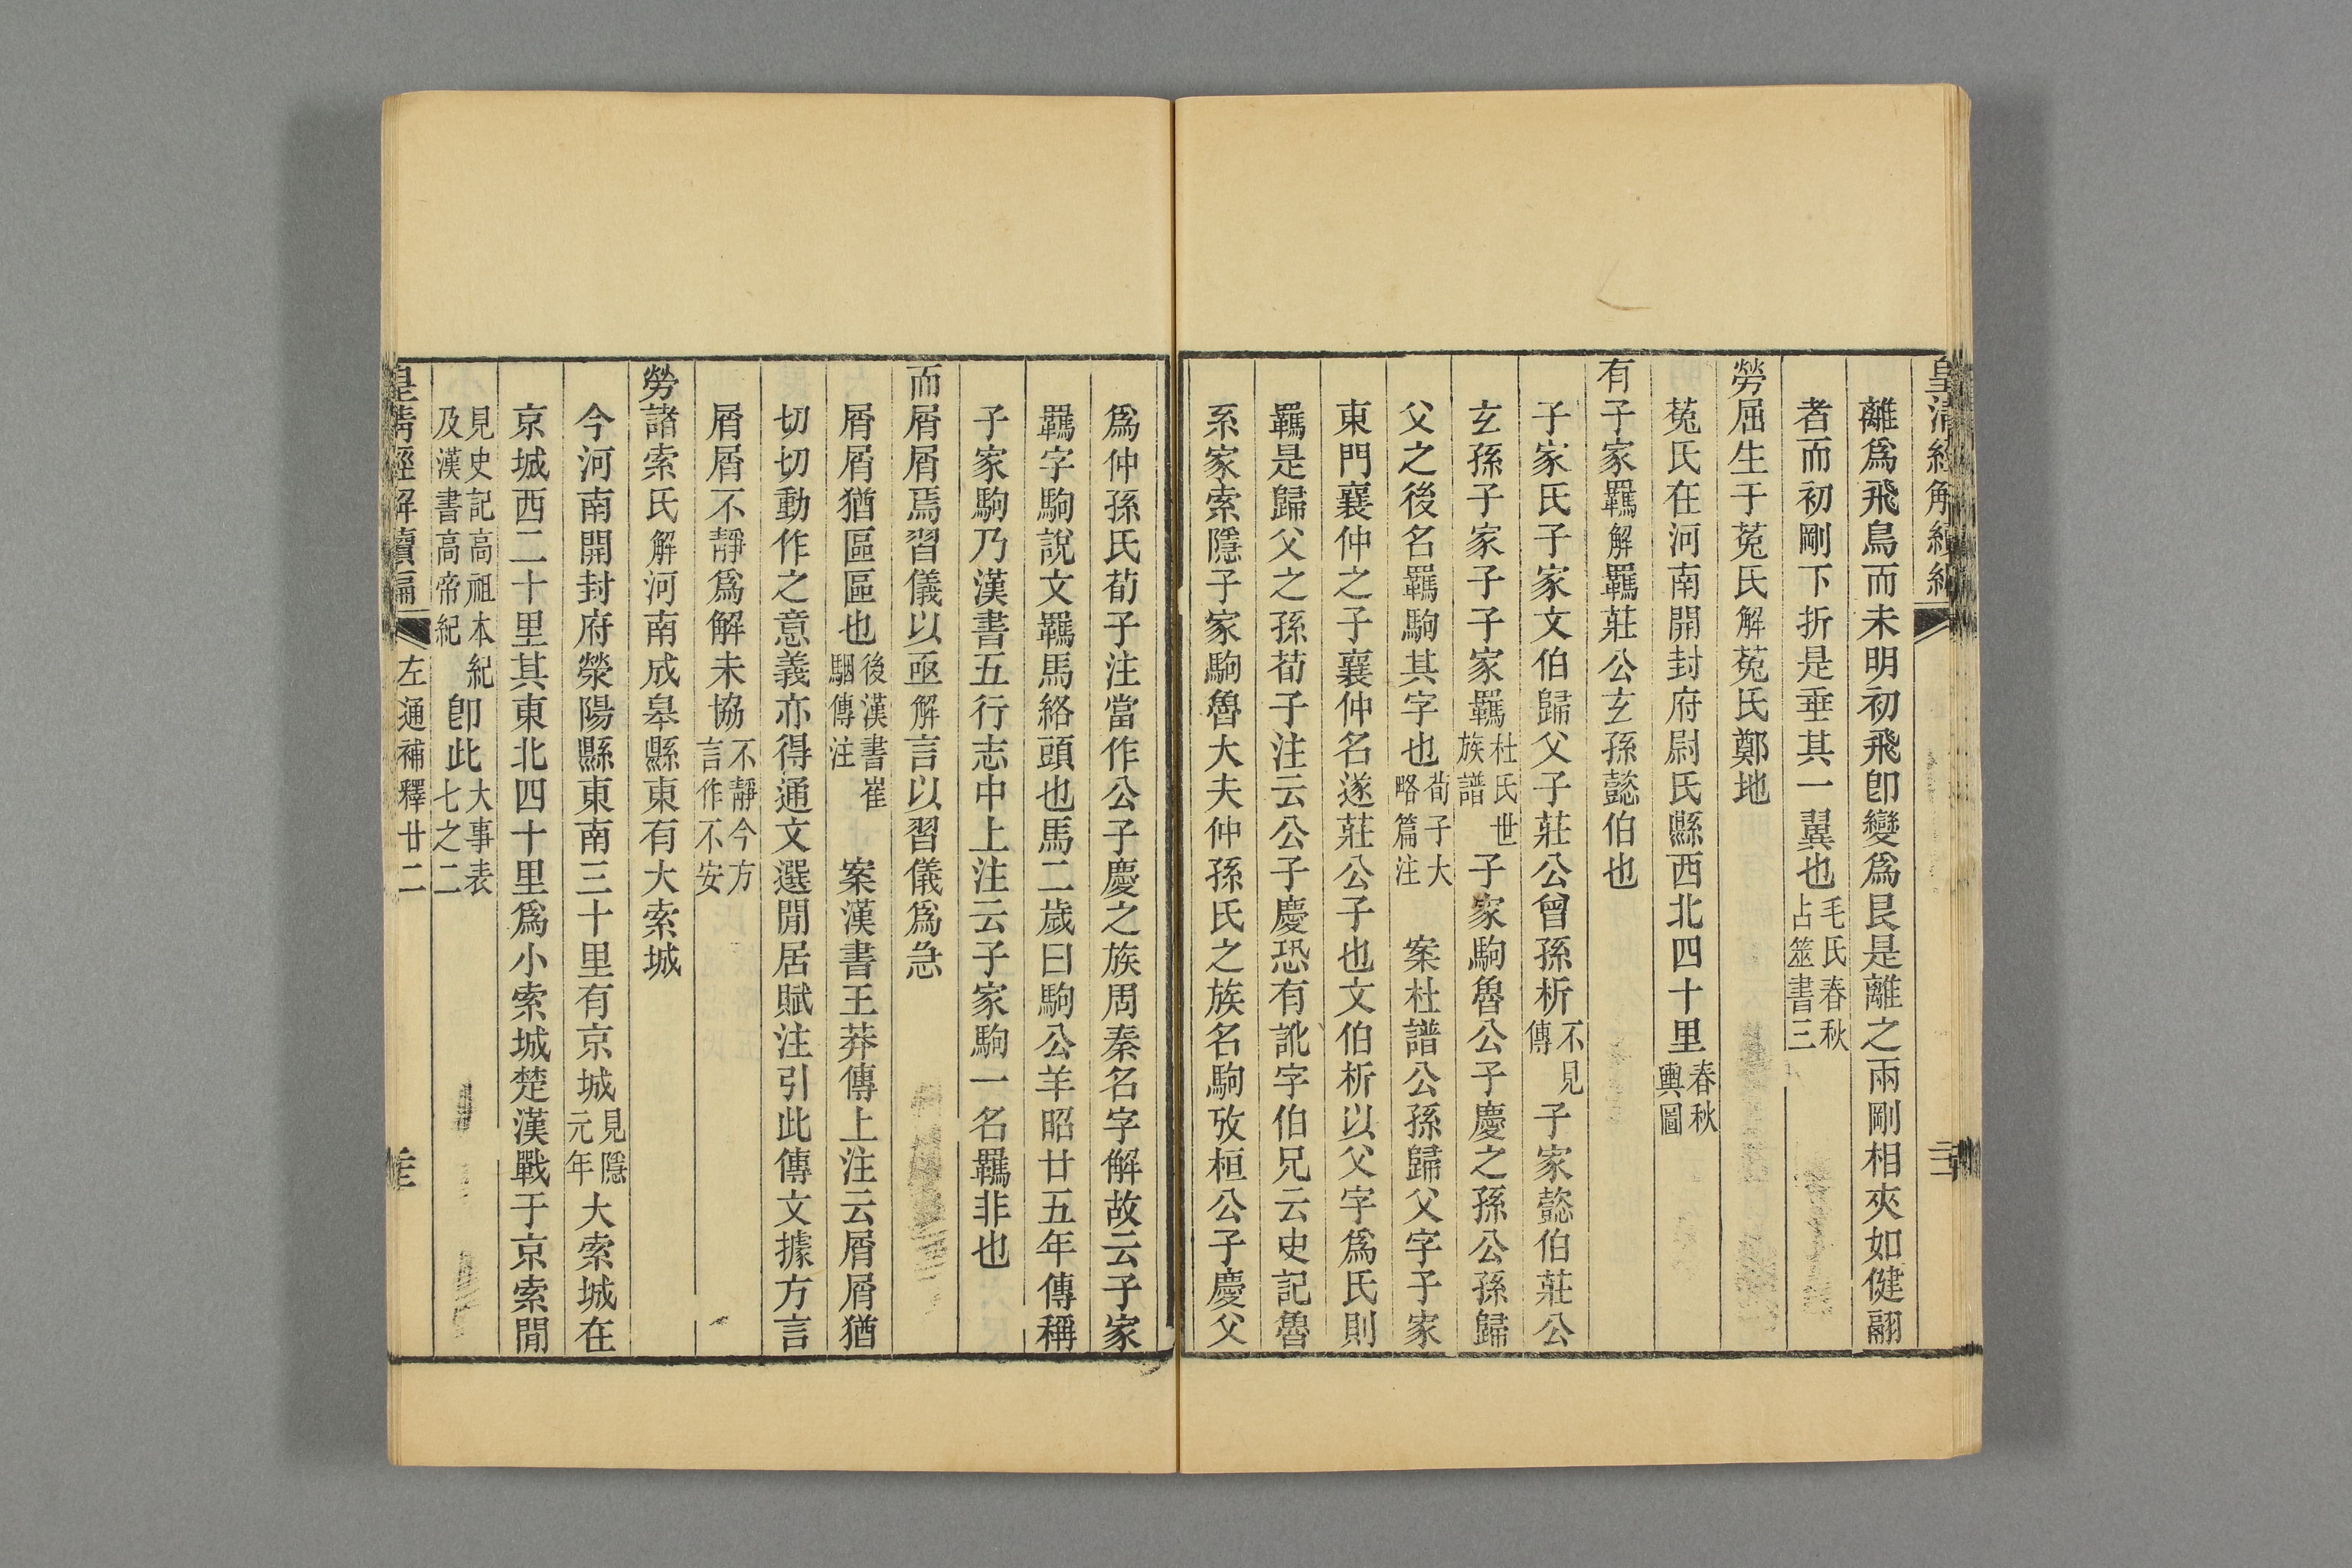 皇清經解續編
離爲飛鳥而未明初飛卽變爲艮是離之兩剛相夾如健翮
者而初剛下折是垂其一翼也毛氏春秋占筮書三
勞屈生于菟氏解菟氏鄭地
菟氏在河南開封府尉氏縣西北四十里春秋輿圖
有子家羈解羈莊公玄孫懿伯也
子家氏子家文伯歸父子莊公曾孫析不見傳子家懿伯莊公
玄孫子家子子家羈杜氏世族譜子家駒魯公子慶之孫公孫歸
父之後名羈駒其字也荀子大略篇注案杜譜公孫歸父字子家
東門襄仲之子襄仲名遂莊公子也文伯析以父字爲氏則
羈是歸父之孫荀子注云公子慶恐有訛字伯兄云史記魯
系家索隱子家駒魯大夫仲孫氏之族名駒攷桓公子慶父
爲仲孫氏荀子注當作公子慶之族周秦名字解故云子家
羈字駒說文羈馬絡頭也馬二歲曰駒公羊昭廿五年傳稱
子家駒乃漢書五行志中上注云子家駒一名羈非也
而屑屑焉習儀以亟解言以習儀爲急
屑屑猶區區也後漢書崔駰傳注案漢書王莽傳上注云屑屑猶
切切動作之意義亦得通文選閒居賦注引此傳文據方言
屑屑不靜爲解未協不靜今方言作不安
勞諸索氏解河南成皋縣東有大索城
今河南開封府滎陽縣東南三十里有京城見隱元年大索城在
京城西二十里其東北四十里爲小索城楚漢戰于京索閒
見史記高祖本紀及漢書高帝紀卽此大事表七之二
皇清經解續編 左通補釋廿二